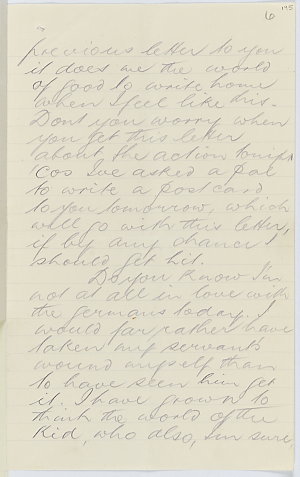 6
175
previous letter to you
it does me the world
of good to write home
when I feel like this.
Dont you worry when
you get this letter
about the action tonight
'Cos I've asked a pal
to write a postcard
to you tomorrow, which
will go with this letter,
if by any chance I
should get hit.
Do you know I'm
not at all in love with
the germans today. I
would far rather have
taken my servants
wound myself than
to have seen him get
it. I have grown to
think the world of the
Kid, who also, I'm sure